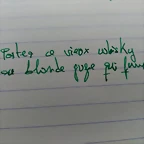 Portez ce vieux whisky
au blonde juge qui fume